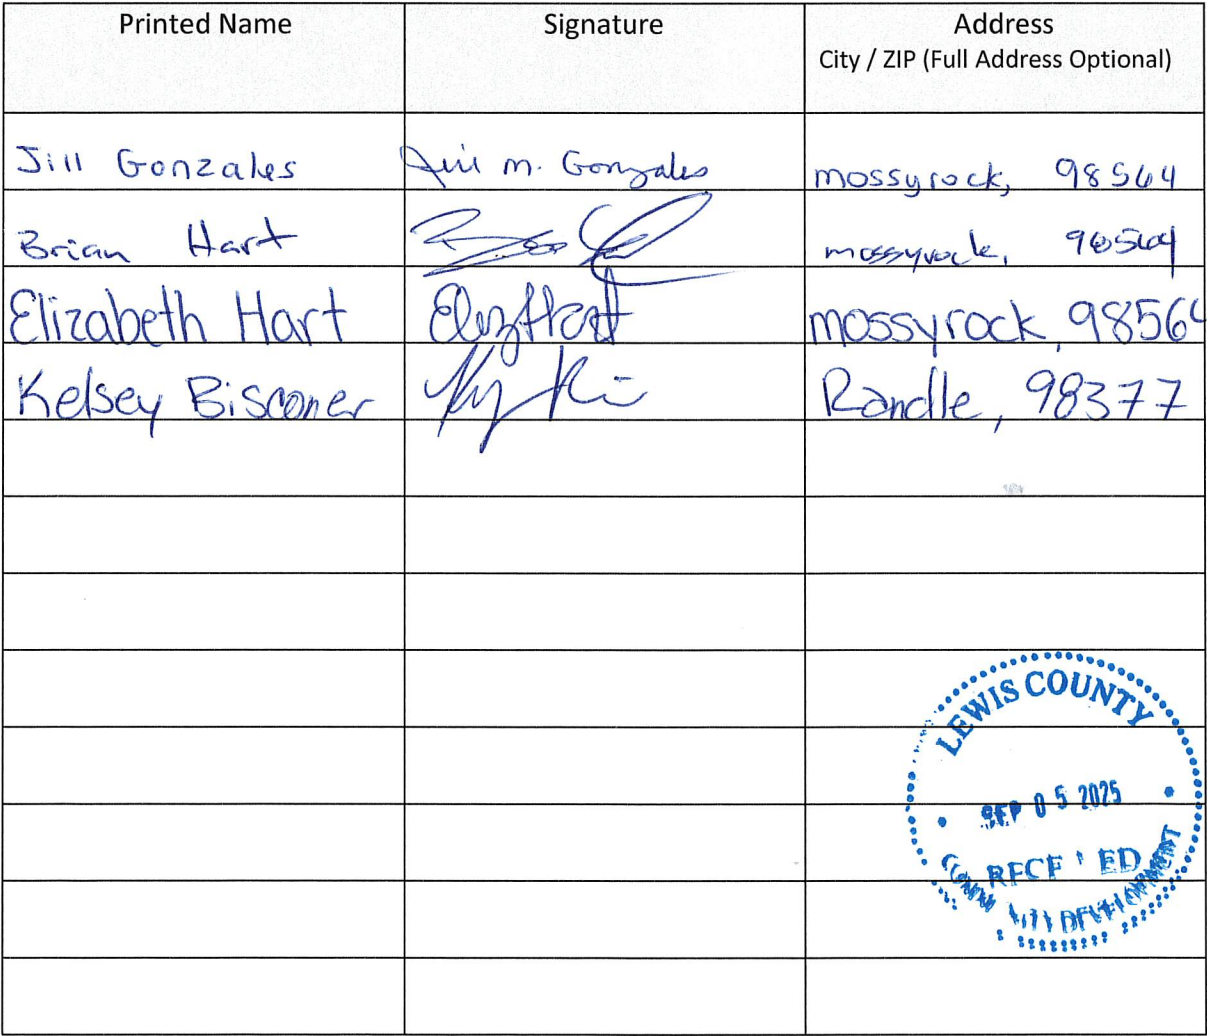 Printed Name Signature Address
City / ZIP (Full Address Optional)
Jill Gonzales Jill M. Gonzales mossyrock, 98564
Brian Hart mossyrock, 98564
Elizabeth Hart Eliz Hart mossyrock, 98564
Kelsey Bisconer Randle, 98377
LEWIS COUNTY
SEP 05 2025
RECEIVED
COMMUNITY DEVELOPMENT